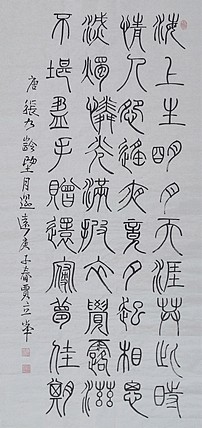 海上生明月天涯共此時
情人怨遙夜竟夕起相思
滅燭憐光滿披衣覺露滋
不堪盈手贈還寢夢佳期
唐張九齡望月懷遠庚子春賈立峯